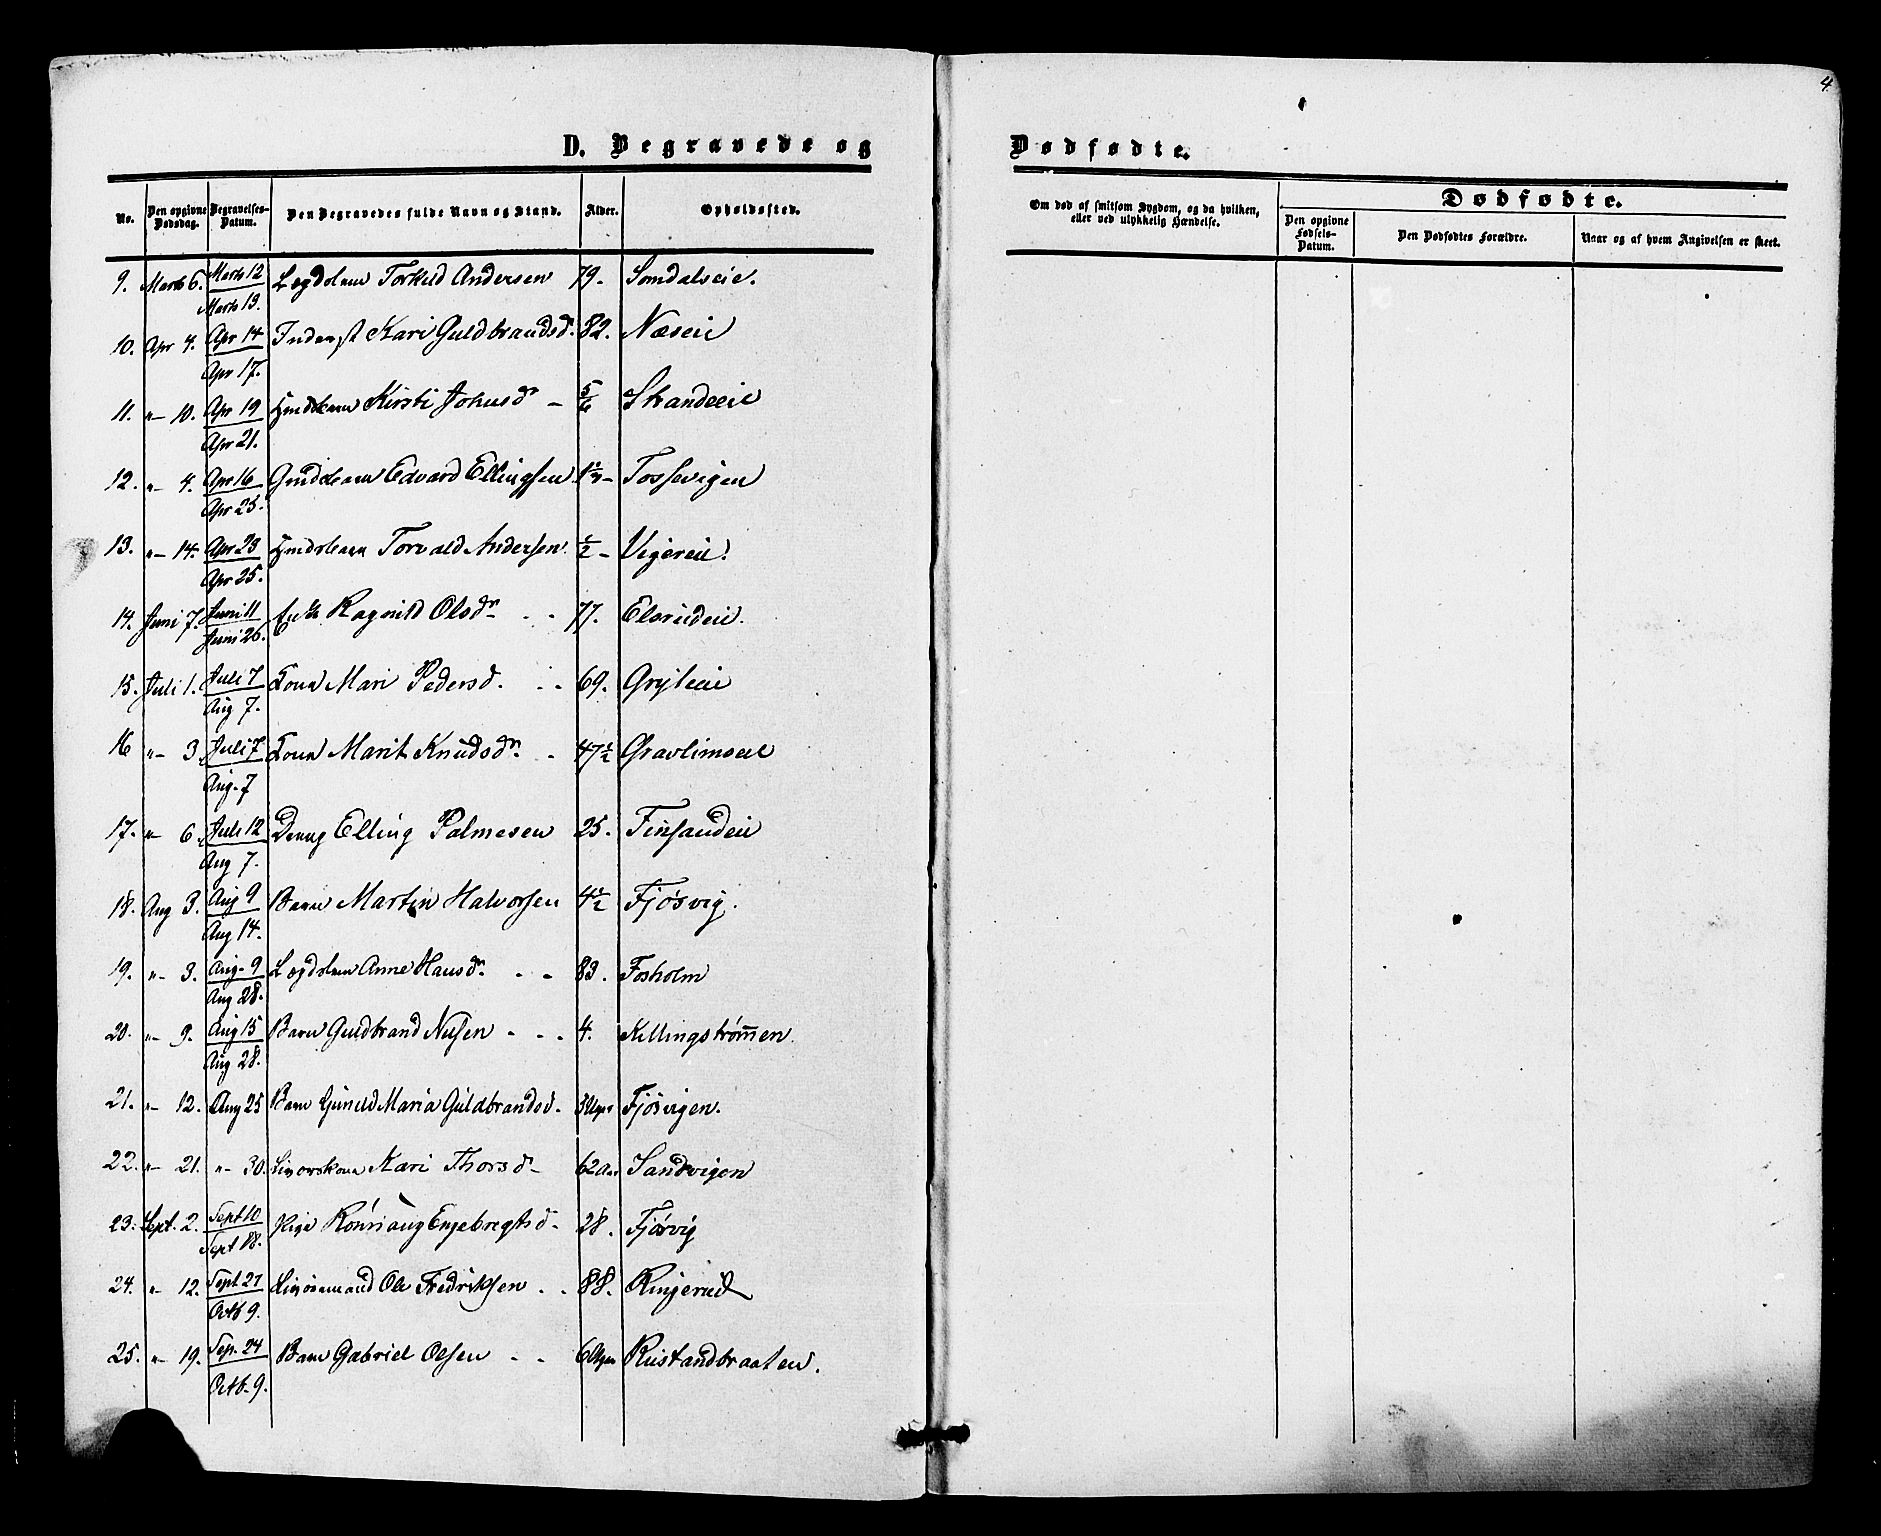 4.
D. Begravede og Dødfødte.
No. Den opgivne Dødsdag. Begravelses-Datum. Den Begravedes fulde Navn og Stand. Alder. Opholdssted.
Om død af smitsom Sygdom, og da hvilken, eller ved ulykkelig Hændelse.
Dødfødte.
Den opgivne Fødsels-Datum. Den Dødfødtes Forældre. Naar og af hvem Angivelsen er skeet.
9. Marts 6. Marts 12 Marts 13. Lægdslem Torkild Andersen 79. Somdalseie.
10. Apr 4. Apr 14 Apr 17. Inderst Kari Guldbrandsd. 82. Næseie
11. "- 10. Apr 19 Apr 21. Kirsti Johnsdr - 5/6 Strandeeie
12. "- 4. Apr 16 Apr 25. Edvard Ellingsen Tossevigen
13. "- 14. Apr 23 Apr 25. Torvald Andersen 1/2 - Vigereie.
14. Juni 7. Juni 11 Juni 26. Enke Ragnild Olsdr - - 77. Elsrudeie.
15. Juli 1. Juli 7 Aug 7. Kona Mari Pedersd. - - 69. Grylieie
16 "- 3. Juli 7 Aug. 7 Kona Marit Knudsdr. - 47 1/2 Gravlimoeie
17. "- 6. Juli 12 Aug 7. Dreng Elling Palmesen 25. Finsandeie
18. Aug 3. Aug 9 Aug 14. Barn Martin Halvorsen 4 1/2 Fjøsvig.
19. "- 3. Aug. 9 Aug 28. Lægdslem Anne Hansdr. - - 83. Fosholm
20. "- 9. Aug 15 Aug 28. Barn Guldbrand Nilsen - - - 4. Killingstrømmen
21. "- 12. Aug 25 Barn Gunild Maria Guldbrandsd. Fjøsvigen.
22. "- 21. "- 30. Kari Thorsd - 62 Aar Sandvigen
23. Sept. 2. Sept 10 Sept 18. Pige Rønnaug Engebregtsd - 28. Fjøsvig
24. "- 12. Sept 27 Octb 9. Ole Fredriksen - - 88. Ringerud
25. "- 19. Sep. 24 Octb. 9. Barn Gabriel Olsen - - 6 Uger Rustandbraaten.